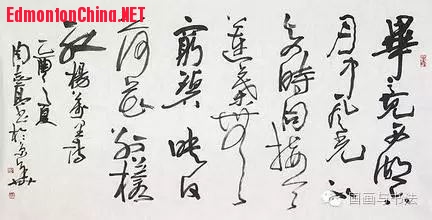 EdmontonChina.NET
畢竟西湖六
月中風光不
与四時同接天
蓮葉無
窮碧映日
荷花別樣
紅楊萬里詩
乙酉之夏
周志高书於京華
国画与书法